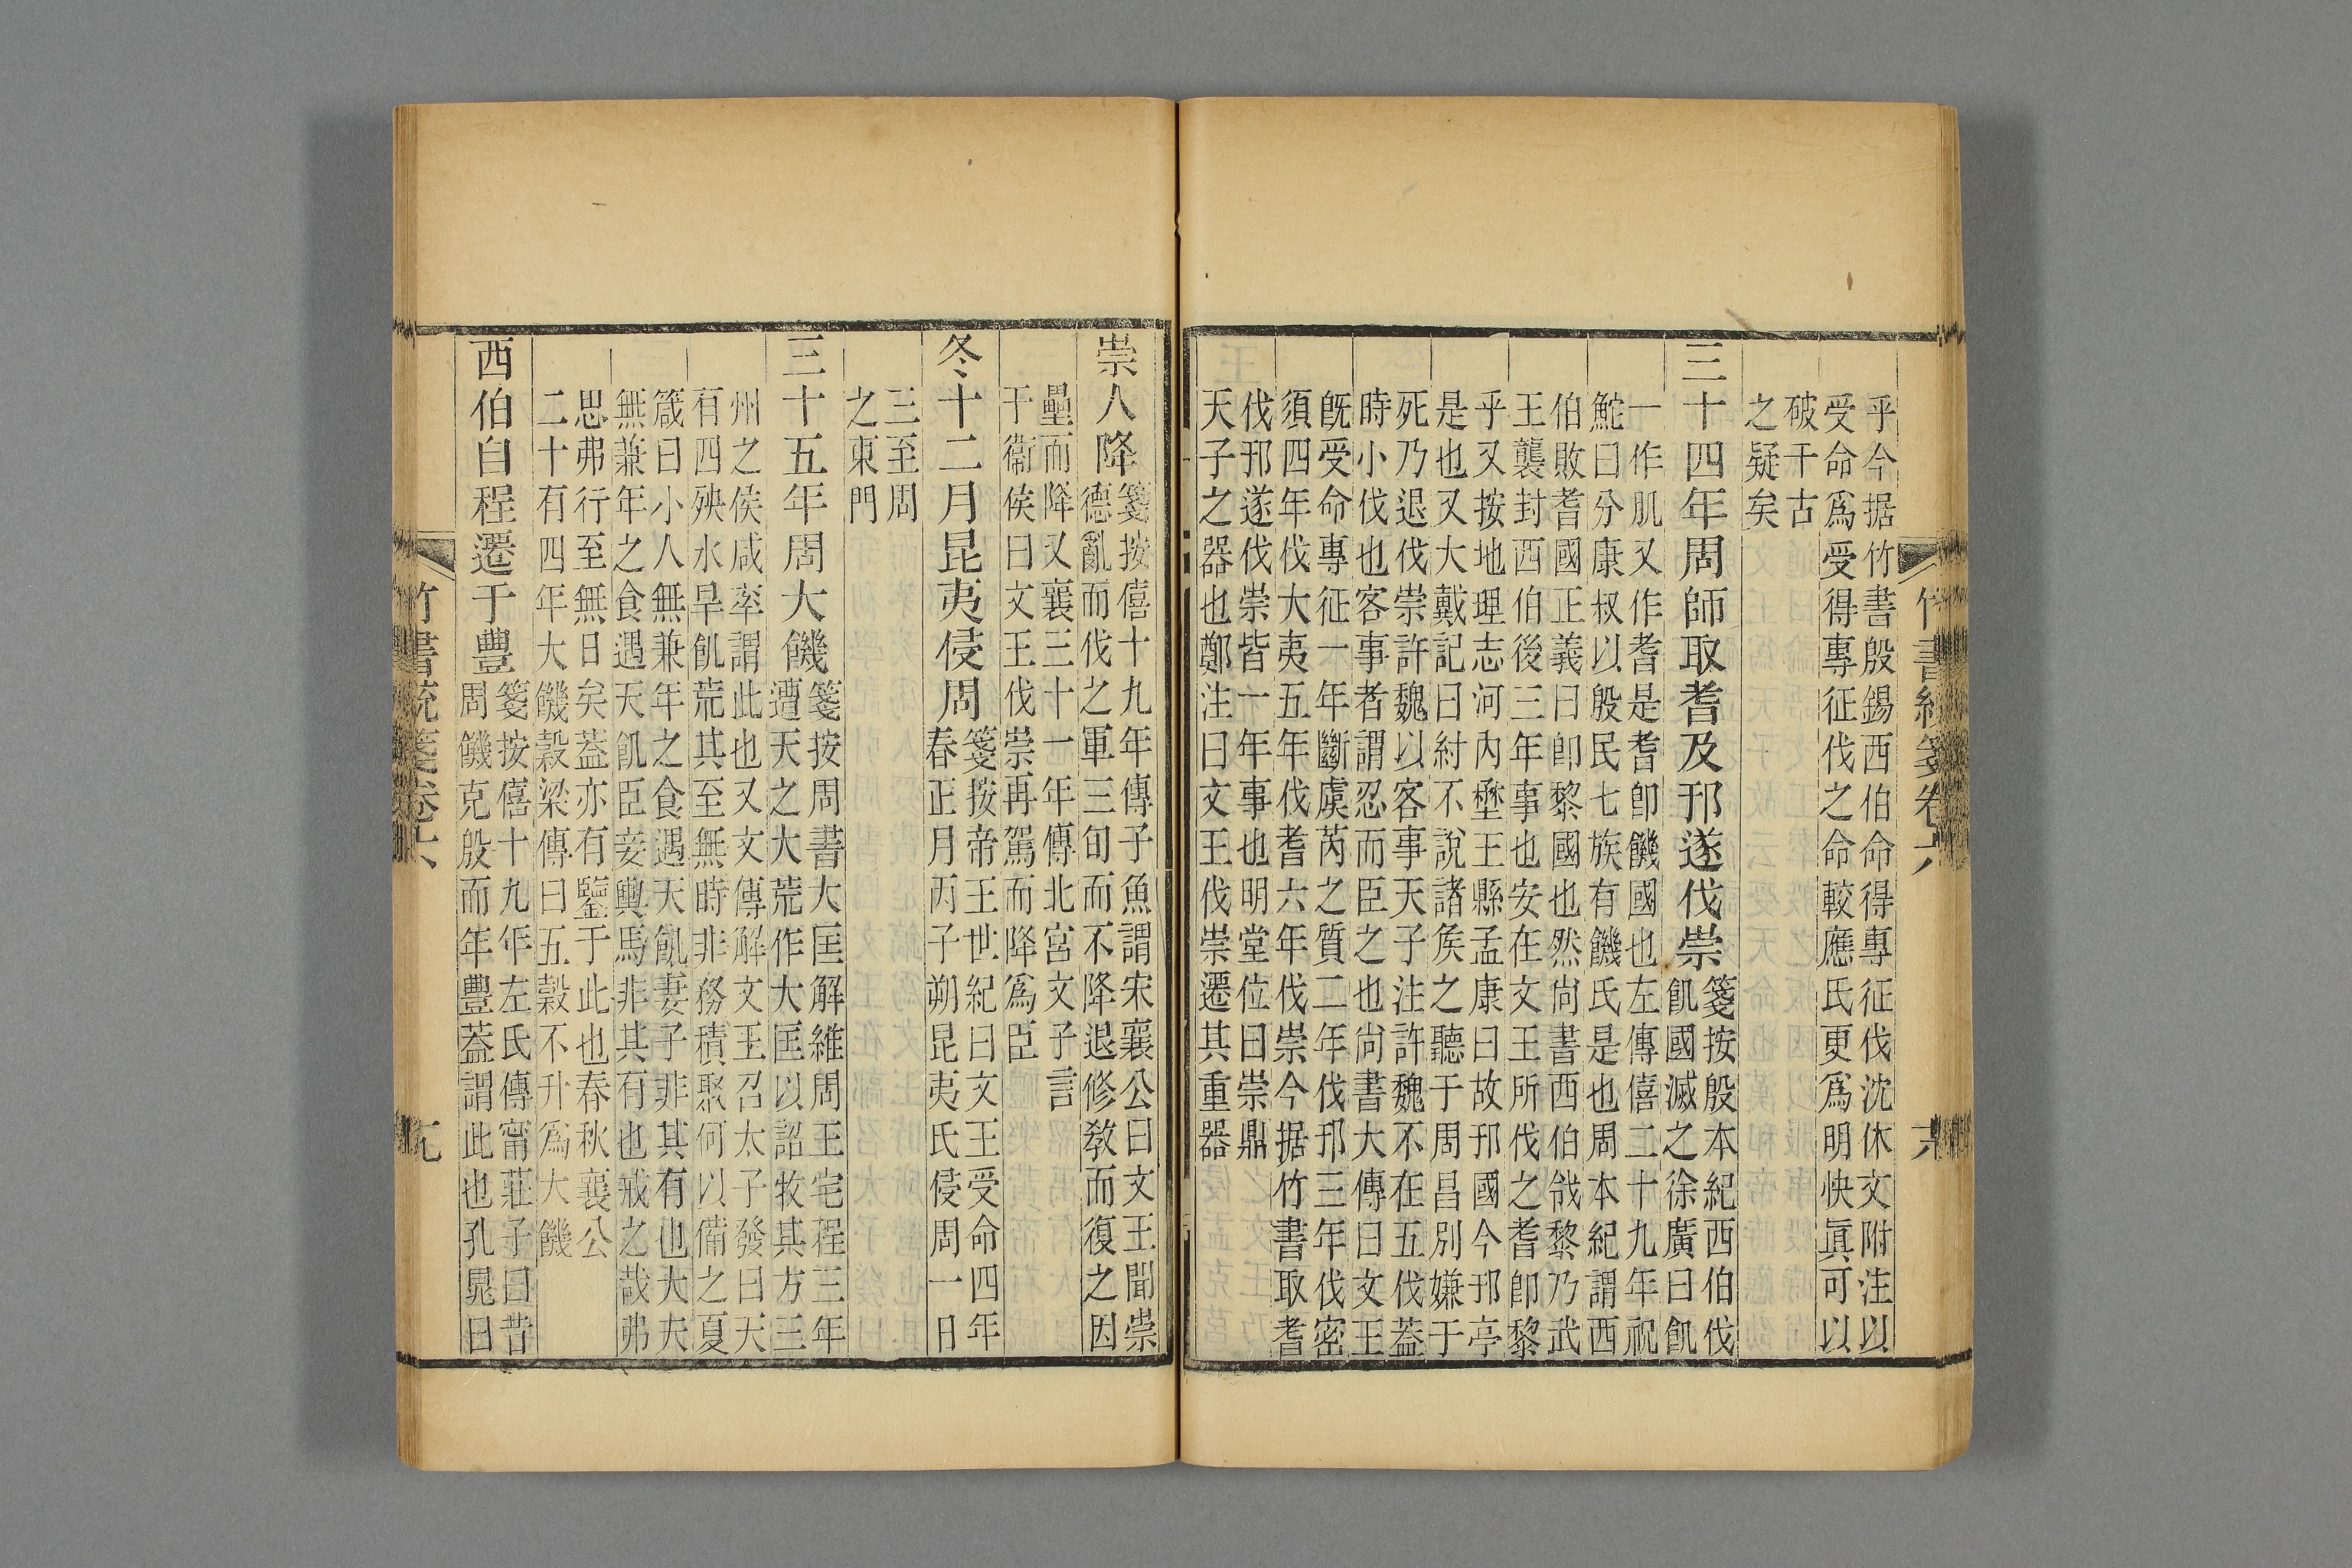 竹書統箋卷六
乎今据竹書殷錫西伯命得專征伐沈休文附注以
受命爲受得專征伐之命較應氏更爲明快眞可以
破千古
之疑矣
三十四年周師取耆及邘遂伐崇
箋按殷本紀西伯伐
飢國滅之徐廣曰飢
一作肌又作耆是耆卽饑國也左傳僖二十九年祝
鮀曰分康叔以殷民七族有饑氏是也周本紀謂西
伯敗耆國正義曰卽黎國也然尙書西伯戗黎乃武
王襲封西伯後三年事也安在文王所伐之耆卽黎
乎又按地理志河內壄王縣孟康曰故邘國今邘亭
是也又大戴記曰紂不說諸矦之聽于周昌別嫌于
死乃退伐崇許魏以客事天子注許魏不在五伐葢
時小伐也客事者謂忍而臣之也尙書大傳曰文王
旣受命專征一年斷虞芮之質二年伐邘三年伐密
須四年伐大夷五年伐耆六年伐崇今据竹書取耆
伐邘遂伐崇皆一年事也明堂位曰崇鼎
天子之器也鄭注曰文王伐崇遷其重器
崇人降
箋按僖十九年傳子魚謂宋襄公曰文王聞崇
德亂而伐之軍三旬而不降退修敎而復之因
壘而降又襄三十一年傳北宮文子言
于衞侯曰文王伐崇再駕而降爲臣
冬十二月昆夷侵周
箋按帝王世紀曰文王受命四年
春正月丙子朔昆夷氏侵周一日
三至周
之東門
三十五年周大饑
箋按周書大匡解維周王宅程三年
遭天之大荒作大匡以詔牧其方三
州之侯咸率謂此也又文傳解文王召太子發曰天
有四殃水旱飢荒其至無時非務積聚何以備之夏
箴曰小人無兼年之食遇天飢妻子非其有也大夫
無兼年之食遇天飢臣妾輿馬非其有也戒之哉弗
思弗行至無日矣葢亦有鑒于此也春秋襄公
二十有四年大饑穀梁傳曰五穀不升爲大饑
西伯自程遷于豐
箋按僖十九年左氏傳甯莊子曰昔
周饑克殷而年豐葢謂此也孔晁曰
竹書統箋卷六
九